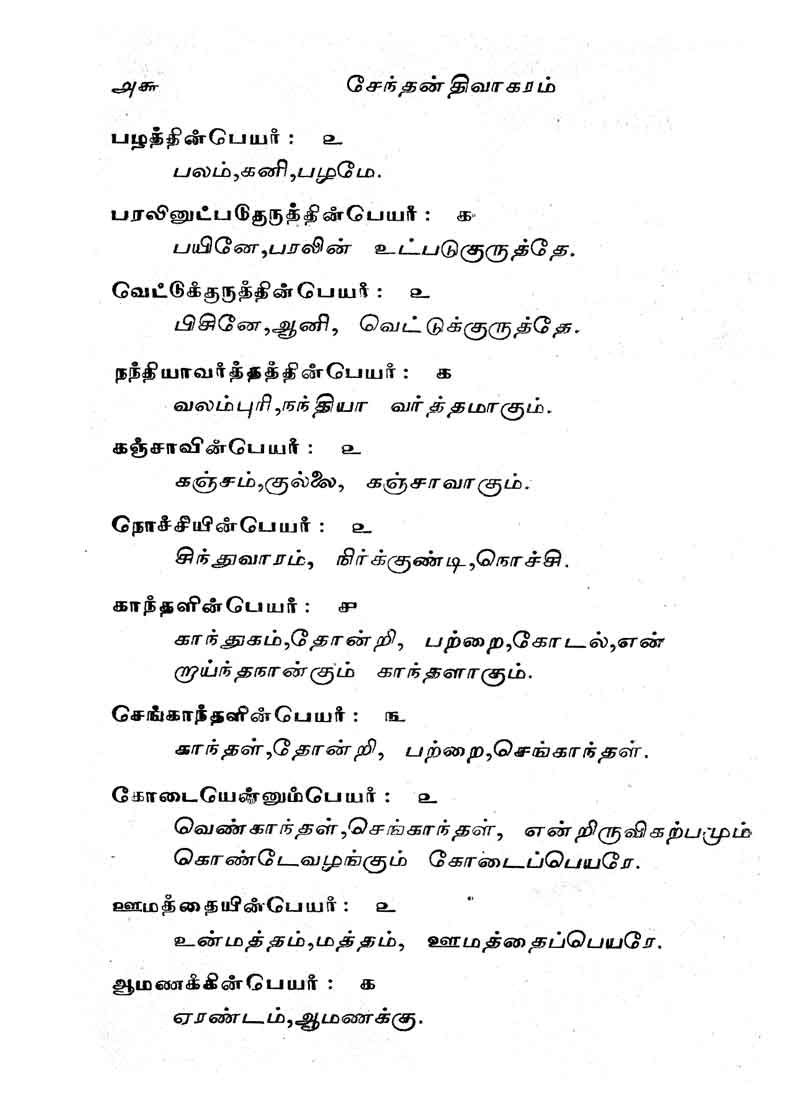 அசு சேந்தன் திவாகரம்
பழத்தின்பெயர் : ௨
பலம்,கனி,பழமே.
பரலினுட்படுகுருத்தின்பெயர் : ௧
பயினே,பரலின் உட்படுகுருத்தே.
வேட்டுக்குருத்தின்பெயர் : ௨
பிசினே,ஆனி, வெட்டுக்குருத்தே.
நந்தியாவர்த்தத்தின்பெயர் : ௧
வலம்புரி,நந்தியா வர்த்தமாகும்.
கஞ்சாவின்பெயர் : ௨
கஞ்சம்,குல்லை, கஞ்சாவாகும்.
நோச்சீயின்பெயர் : ௨
சிந்துவாரம், நிர்க்குண்டி,நொச்சி.
காந்தளின்பெயர் : ௪
காந்துகம்,தோன்றி, பற்றை,கோடல்,என்
றாய்ந்தநான்கும் காந்தளாகும்.
சேங்காந்தளின்பெயர் : ௩
காந்தள்,தோன்றி, பற்றை,செங்காந்தள்.
கோடையென்னும்பெயர் : ௨
வெண்காந்தள்,செங்காந்தள், என்றிருவிகற்பமும்
கொண்டேவழங்கும் கோடைப்பெயரே.
ஊமத்தையின்பெயர் : ௨
உன்மத்தம்,மத்தம், ஊமத்தைப்பெயரே.
ஆமணக்கின்பெயர் : ௧
ஏரண்டம்,ஆமணக்கு.